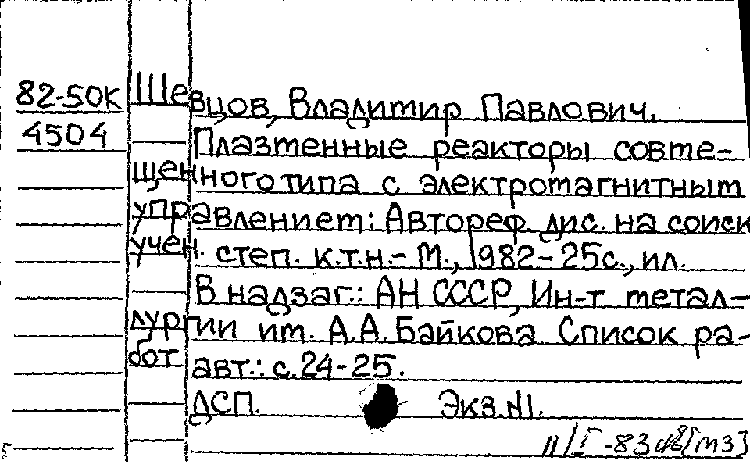 82-50К Шевцов, Владимир Павлович.
4504 Плазменные реакторы совме-
щенного типа с электромагнитным
управлением: Автореф. дис. на соиск
учен. степ. к.т.н.- М., 1982-25с., ил.
В надзаг.: АН СССР, Ин-т метал-
лургии им. А.А. Байкова. Список ра-
бот авт.: с.24-25.
ДСП. Экз.№1.
11/I-83